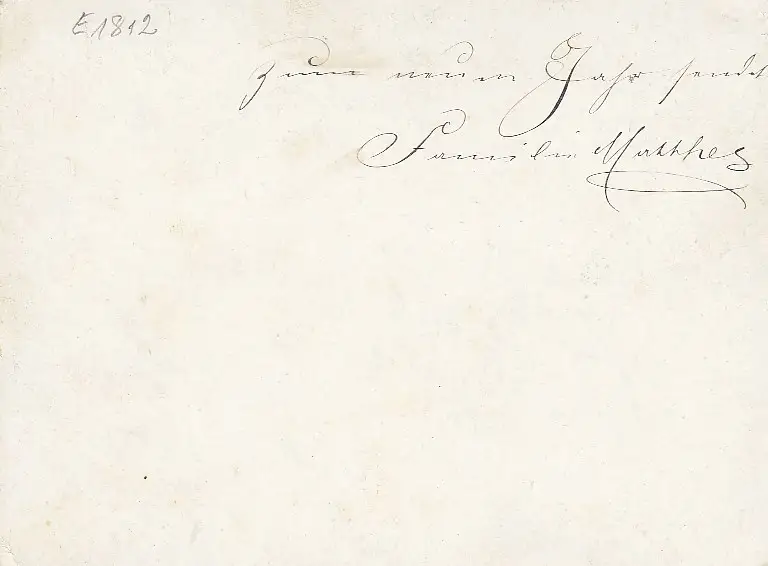 E1812
Zum neuen Jahr sendet
Familie Matthes